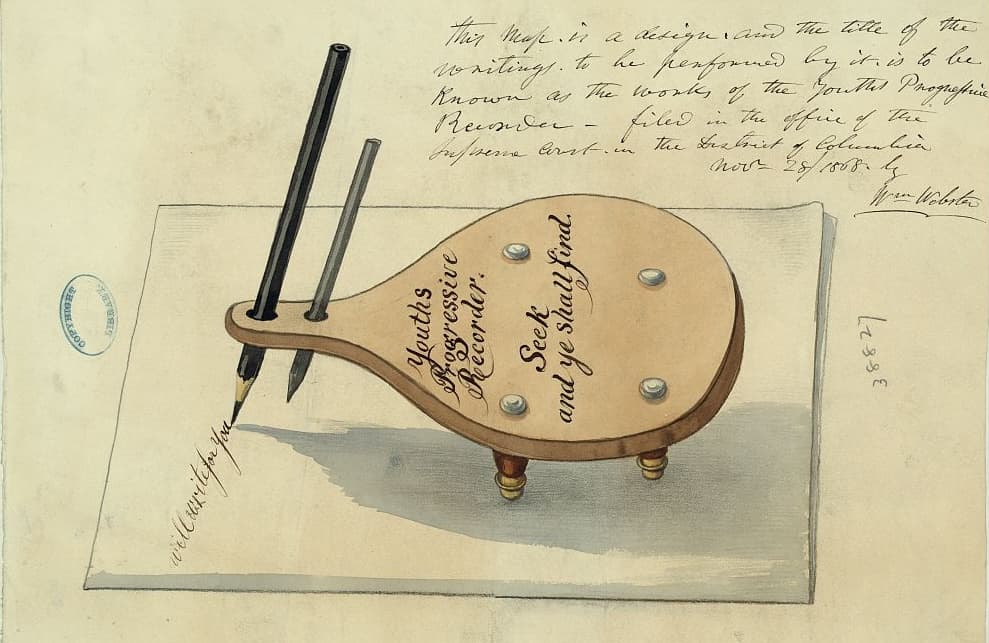 this Map. is a design. and the title of the
writings. to be performed by it. is to be
Known as the works of the Youths Progressive
Recorder – filed in the office of the
Supreme Court. in the District of Columbia
Novr 28/1868. by
Wm Webster
Youths
Progressive
Recorder.
Seek
and ye shall find.
will write for you
COPYRIGHT
LIBRARY
38827